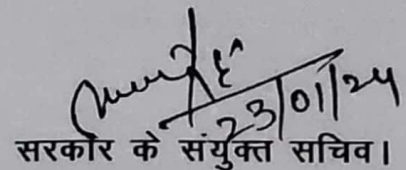 23/01/24
सरकार के संयुक्त सचिव।